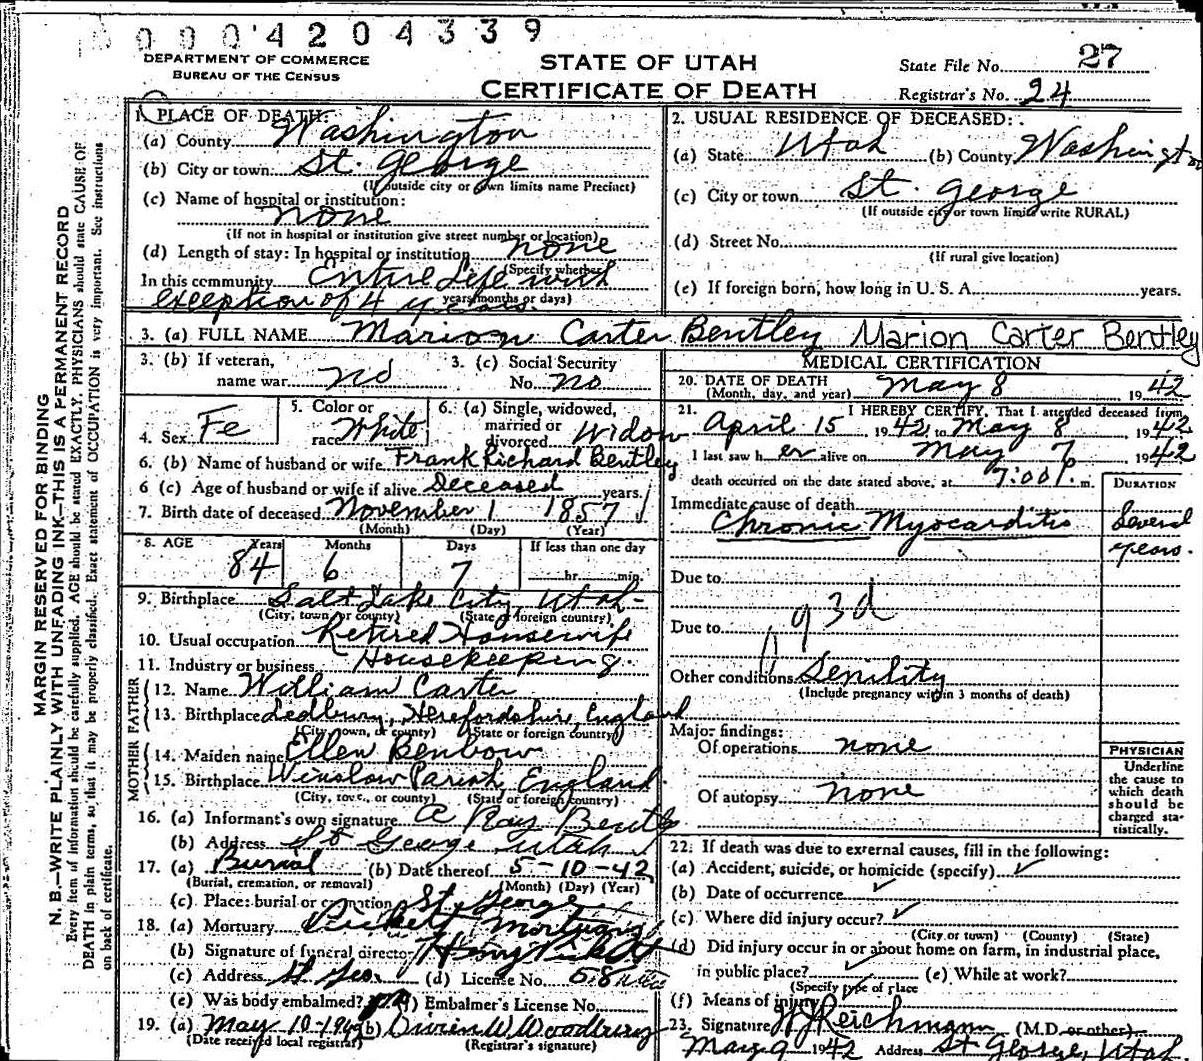 0004204339
DEPARTMENT OF COMMERCE
BUREAU OF THE CENSUS
STATE OF UTAH
CERTIFICATE OF DEATH
State File No. 27
Registrar's No. 24
MARGIN RESERVED FOR BINDING
N. B.—WRITE PLAINLY WITH UNFADING INK—THIS IS A PERMANENT RECORD
Every item of information should be carefully supplied. AGE should be stated EXACTLY. PHYSICIANS should state CAUSE OF
DEATH in plain terms, so that it may be properly classified. Exact statement of OCCUPATION is very important. See instructions
on back of certificate.
1. PLACE OF DEATH:
(a) County Washington
(b) City or town St. George
(If outside city or town limits name Precinct)
(c) Name of hospital or institution:
none
(If not in hospital or institution give street number or location)
(d) Length of stay: In hospital or institution none
(Specify whether
In this community Entire Life with
exception of 4 years. years, months or days)
2. USUAL RESIDENCE OF DECEASED:
(a) State Utah (b) County Washington
(c) City or town St. George
(If outside city or town limits write RURAL)
(d) Street No.
(If rural give location)
(e) If foreign born, how long in U. S. A. years.
3. (a) FULL NAME Marion Carter Bentley Marion Carter Bentley
3. (b) If veteran,
name war no
3. (c) Social Security
No. no
4. Sex Fe
5. Color or
race White
6. (a) Single, widowed,
married or
divorced Widow
6. (b) Name of husband or wife Frank Richard Bentley
6 (c) Age of husband or wife if alive Deceased years.
7. Birth date of deceased November 1 1857
(Month) (Day) (Year)
8. AGE Years Months Days If less than one day
84 6 7 hr. min.
9. Birthplace Salt Lake City, Utah
(City, town or county) (State or foreign country)
10. Usual occupation Retired Housewife
11. Industry or business Housekeeping.
FATHER
12. Name William Carter
13. Birthplace Ledbury, Herefordshire, England
(City, town, or county) (State or foreign country)
MOTHER
14. Maiden name Ellen Benbow
15. Birthplace Winslow Parish, England
(City, town, or county) (State or foreign country)
16. (a) Informant's own signature A Ray Bentley
(b) Address St George Utah
17. (a) Burial (b) Date thereof 5-10-42
(Burial, cremation, or removal) (Month) (Day) (Year)
(c) Place: burial or cremation St. George
18. (a) Mortuary Pickett Mortuary
(b) Signature of funeral director Henry Pickett
(c) Address St. Geo. (d) License No. 58
(e) Was body embalmed? (f) Embalmer's License No.
19. (a) May 10-1942 (b) W. Woodbury
(Date received local registrar) (Registrar's signature)
MEDICAL CERTIFICATION
20. DATE OF DEATH May 8 1942
(Month, day, and year)
21. I HEREBY CERTIFY, That I attended deceased from
April 15 1942, to May 8 1942
I last saw her alive on May 7 1942
death occurred on the date stated above, at 7:00 P. m.
DURATION
Immediate cause of death
Chronic Myocarditis Several
years.
Due to
93d
Due to
Other conditions Senility
(Include pregnancy within 3 months of death)
Major findings:
Of operations none
Of autopsy none
PHYSICIAN
Underline
the cause to
which death
should be
charged sta-
tistically.
22. If death was due to external causes, fill in the following:
(a) Accident, suicide, or homicide (specify) ✓
(b) Date of occurrence ✓
(c) Where did injury occur? ✓
(City or town) (County) (State)
(d) Did injury occur in or about home on farm, in industrial place,
in public place? ✓ (e) While at work?
(Specify type of place
(f) Means of injury
23. Signature W J Reichmann (M.D. or other)
May 9 1942 Address St George, Utah